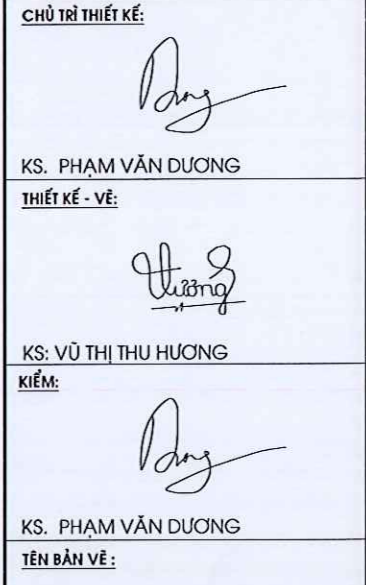 CHỦ TRÌ THIẾT KẾ:
Dương
KS. PHẠM VĂN DƯƠNG
THIẾT KẾ - VẼ:
Hương
KS: VŨ THỊ THU HƯƠNG
KIỂM:
Dương
KS. PHẠM VĂN DƯƠNG
TÊN BẢN VẼ :